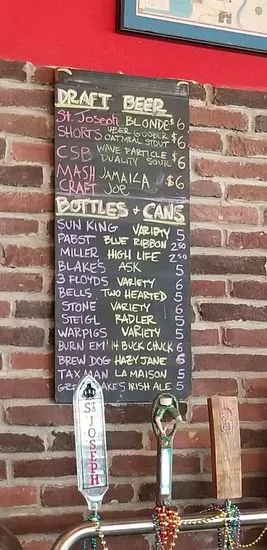 DRAFT BEER
St. Joseph BLONDE $6
SHORTS UBER GOOBER OATMEAL STOUT $6
CSB WAVE PARTICLE DUALITY SOUR $6
MASH CRAFT JAMAICA JOE $6
BOTTLES + CANS
SUN KING VARIETY 5
PABST BLUE RIBBON 2.50
MILLER HIGH LIFE 2.50
BLAKE'S ASK 5
3 FLOYDS VARIETY 6
BELLS TWO HEARTED 5
STONE VARIETY 6
STEIGL RADLER 5
WARPIGS VARIETY 5
BURN EM' 14 BUCK CHUCK 6
BREW DOG HAZY JANE 6
TAX MAN LA MAISON 5
GREAT LAKES IRISH ALE 5
ST JOSEPH